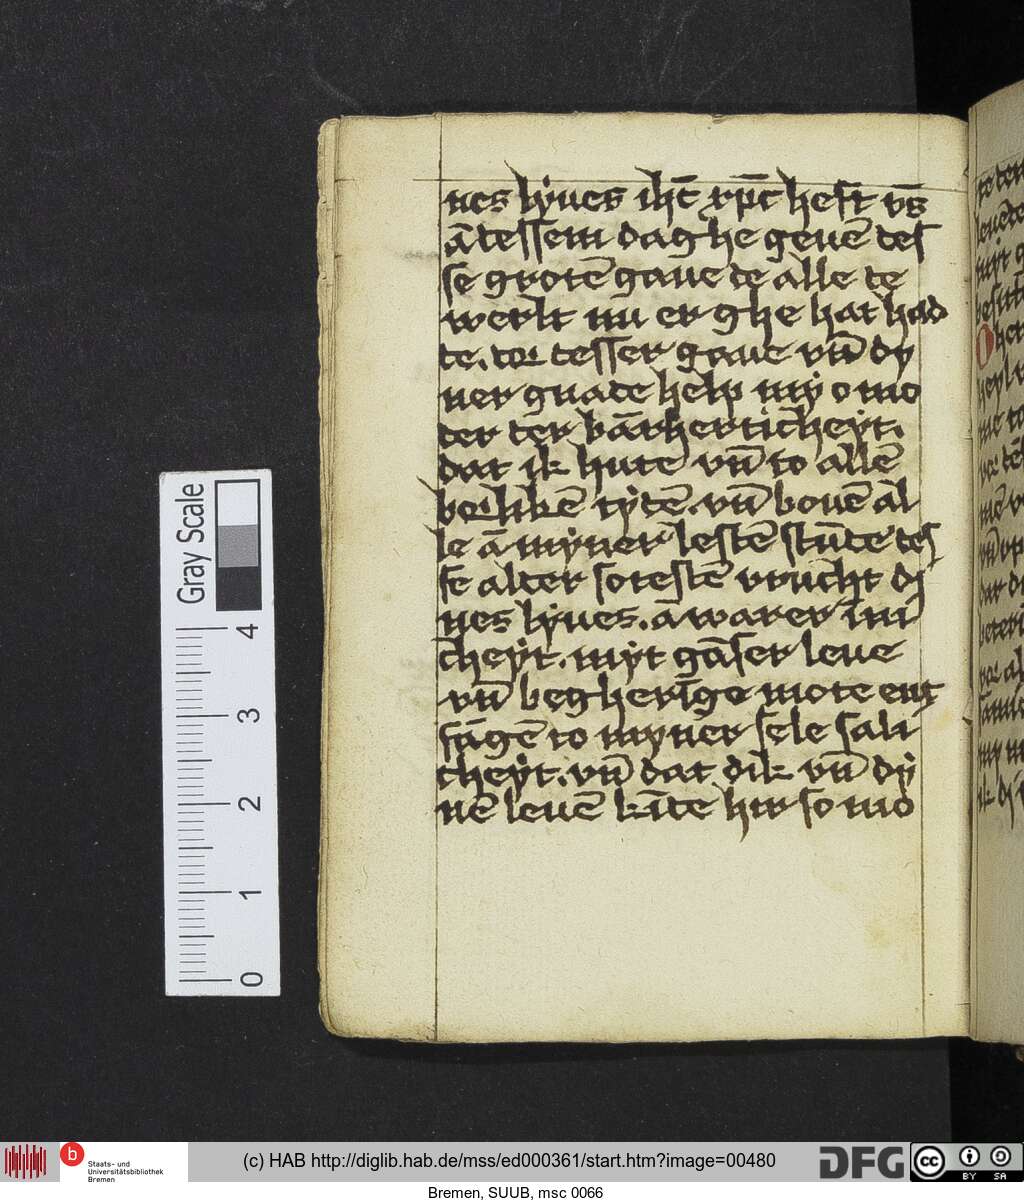 nes lyues ih̄c xp̄c heft vs̄
ā dessem daghe geuē des
se grotē gaue de alle de
werlt nu er ghe hat had
de. vor desser gaue vn̄ dy
ner gnade help my o mo
der der bārherticheyt.
dat ik hute vn̄ to allē
borlikē tydē. vn̄ bouē al
le ā myner lestē stūde des
se alder sotestē vrucht di
nes lyues. ā warer īni
cheyt. myt gāser leue
vn̄ begherīge mote ent
fāgē to myner sele sali
cheyt. vn̄ dat dik vn̄ dy
nē leuē kīde hir so mo
Gray Scale
4
3
2
1
0
b
Staats- und
Universitätsbibliothek
Bremen
(c) HAB http://diglib.hab.de/mss/ed000361/start.htm?image=00480
DFG
cc
BY SA
Bremen, SUUB, msc 0066